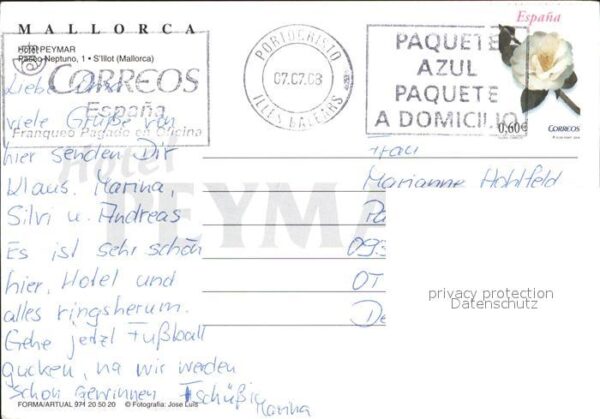 MALLORCA
Hotel PEYMAR
Paseo Neptuno, 1 • S'Illot (Mallorca)
CORREOS
España
Franqueo Pagado en Oficina
PORTOCRISTO
07.07.08
ILLES BALEARS
PAQUETE
AZUL
PAQUETE
A DOMICILIO
España
0,60€
CORREOS
Hotel
PEYMA
Liebe
viele Grüße von
hier senden Dir
Klaus, Marina,
Silvi u. Andreas
Es ist sehr schön
hier, Hotel und
alles ringsherum.
Gehe jetzt Fußball
gucken, na wir werden
schon gewinnen Tschüßi
Marina
Frau
Marianne Hohlfeld
Pa
093
OT
De
privacy protection
Datenschutz
FORMA/ARTUAL 971 20 50 20 © Fotografia: Jose Luis